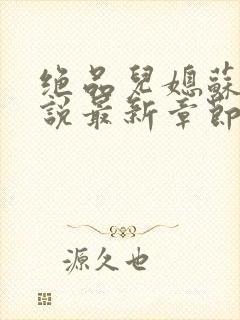 绝品兒媳蘇
說最新章節
源久也